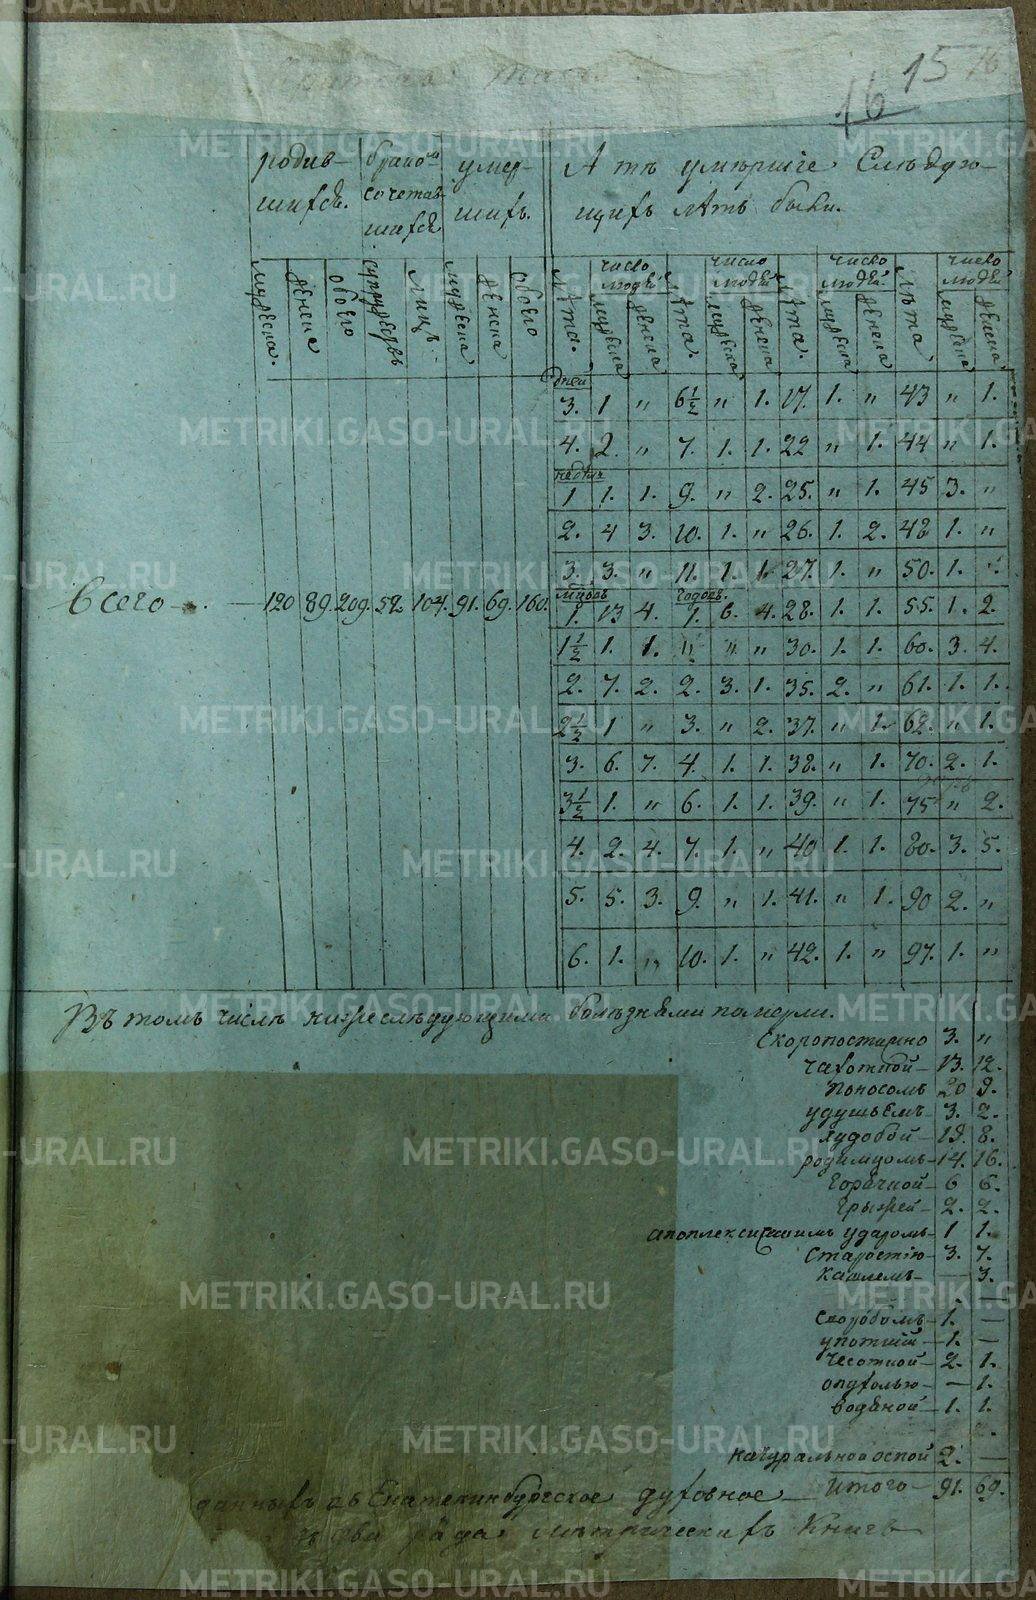 16 15 16
родив- брако умер- А тѣ умѣршіе Слѣдую-
шихся. сочетав- шихъ. щихъ лѣтъ были.
шихся
число число число число
людей людей людей людей
мужеска. женска обоего супружествъ лицъ. мужеска женска обоего
лѣта. мужеска женска лѣта. мужеска женска лѣта. мужеска женска лѣта мужеска женска
дней
3. 1 " 6½ " 1. 17. 1. " 43 " 1.
4. 2. " 7. 1. 1. 22 " 1. 44 " 1.
недѣль
1 1. 1. 9. " 2. 25. " 1. 45 3. "
2. 4 3. 10. 1. " 26. 1. 2. 48 1. "
3. 3. " 11. 1. 1. 27. 1. " 50. 1. "
Всего 120 89. 209. 52. 104. 91. 69. 160.
годовъ.
1. 13 4. 1. 6. 4. 28. 1. 1. 55. 1. 2.
1½ 1. 1. " " " 30. 1. 1. 60. 3. 4.
2. 7. 2. 2. 3. 1. 35. 2. " 61. 1. 1.
2½ 1 " 3. " 2. 37. " 1. 62. " 1.
3. 6. 7. 4. 1. 1. 38. " 1. 70. 2. 1.
3½ 1. " 6. 1. 1. 39. " 1. 75 " 2.
4. 2. 4. 7. 1. " 40 1. 1. 80. 3. 5.
5. 5. 3. 9. " 1. 41. " 1. 90 2. "
6. 1. " 10. 1. " 42. 1. " 97. 1. "
Въ томъ числѣ нижеслѣдующими болѣзнями померли.
Скоропостижно 3. "
Чахоткой 13. 12.
Поносомъ 20 9.
удушьемъ 3. 2.
худобой 18. 8.
родимцомъ 14. 16.
Горячкой 6 6.
Грыжей 2. 2.
апоплексическимъ ударомъ 1 1.
Старостію 3. 7.
Кашлемъ — 3.
Скорбомъ 1. —
1. —
Чесоткой 2. 1.
опухолью — 1.
водяной 1. 1.
Натуральною оспой 2. —
Итого 91. 69.
данныхъ изъ Екатеринбургское духовное
метрическихъ Книгъ
METRIKI.GASO-URAL.RU